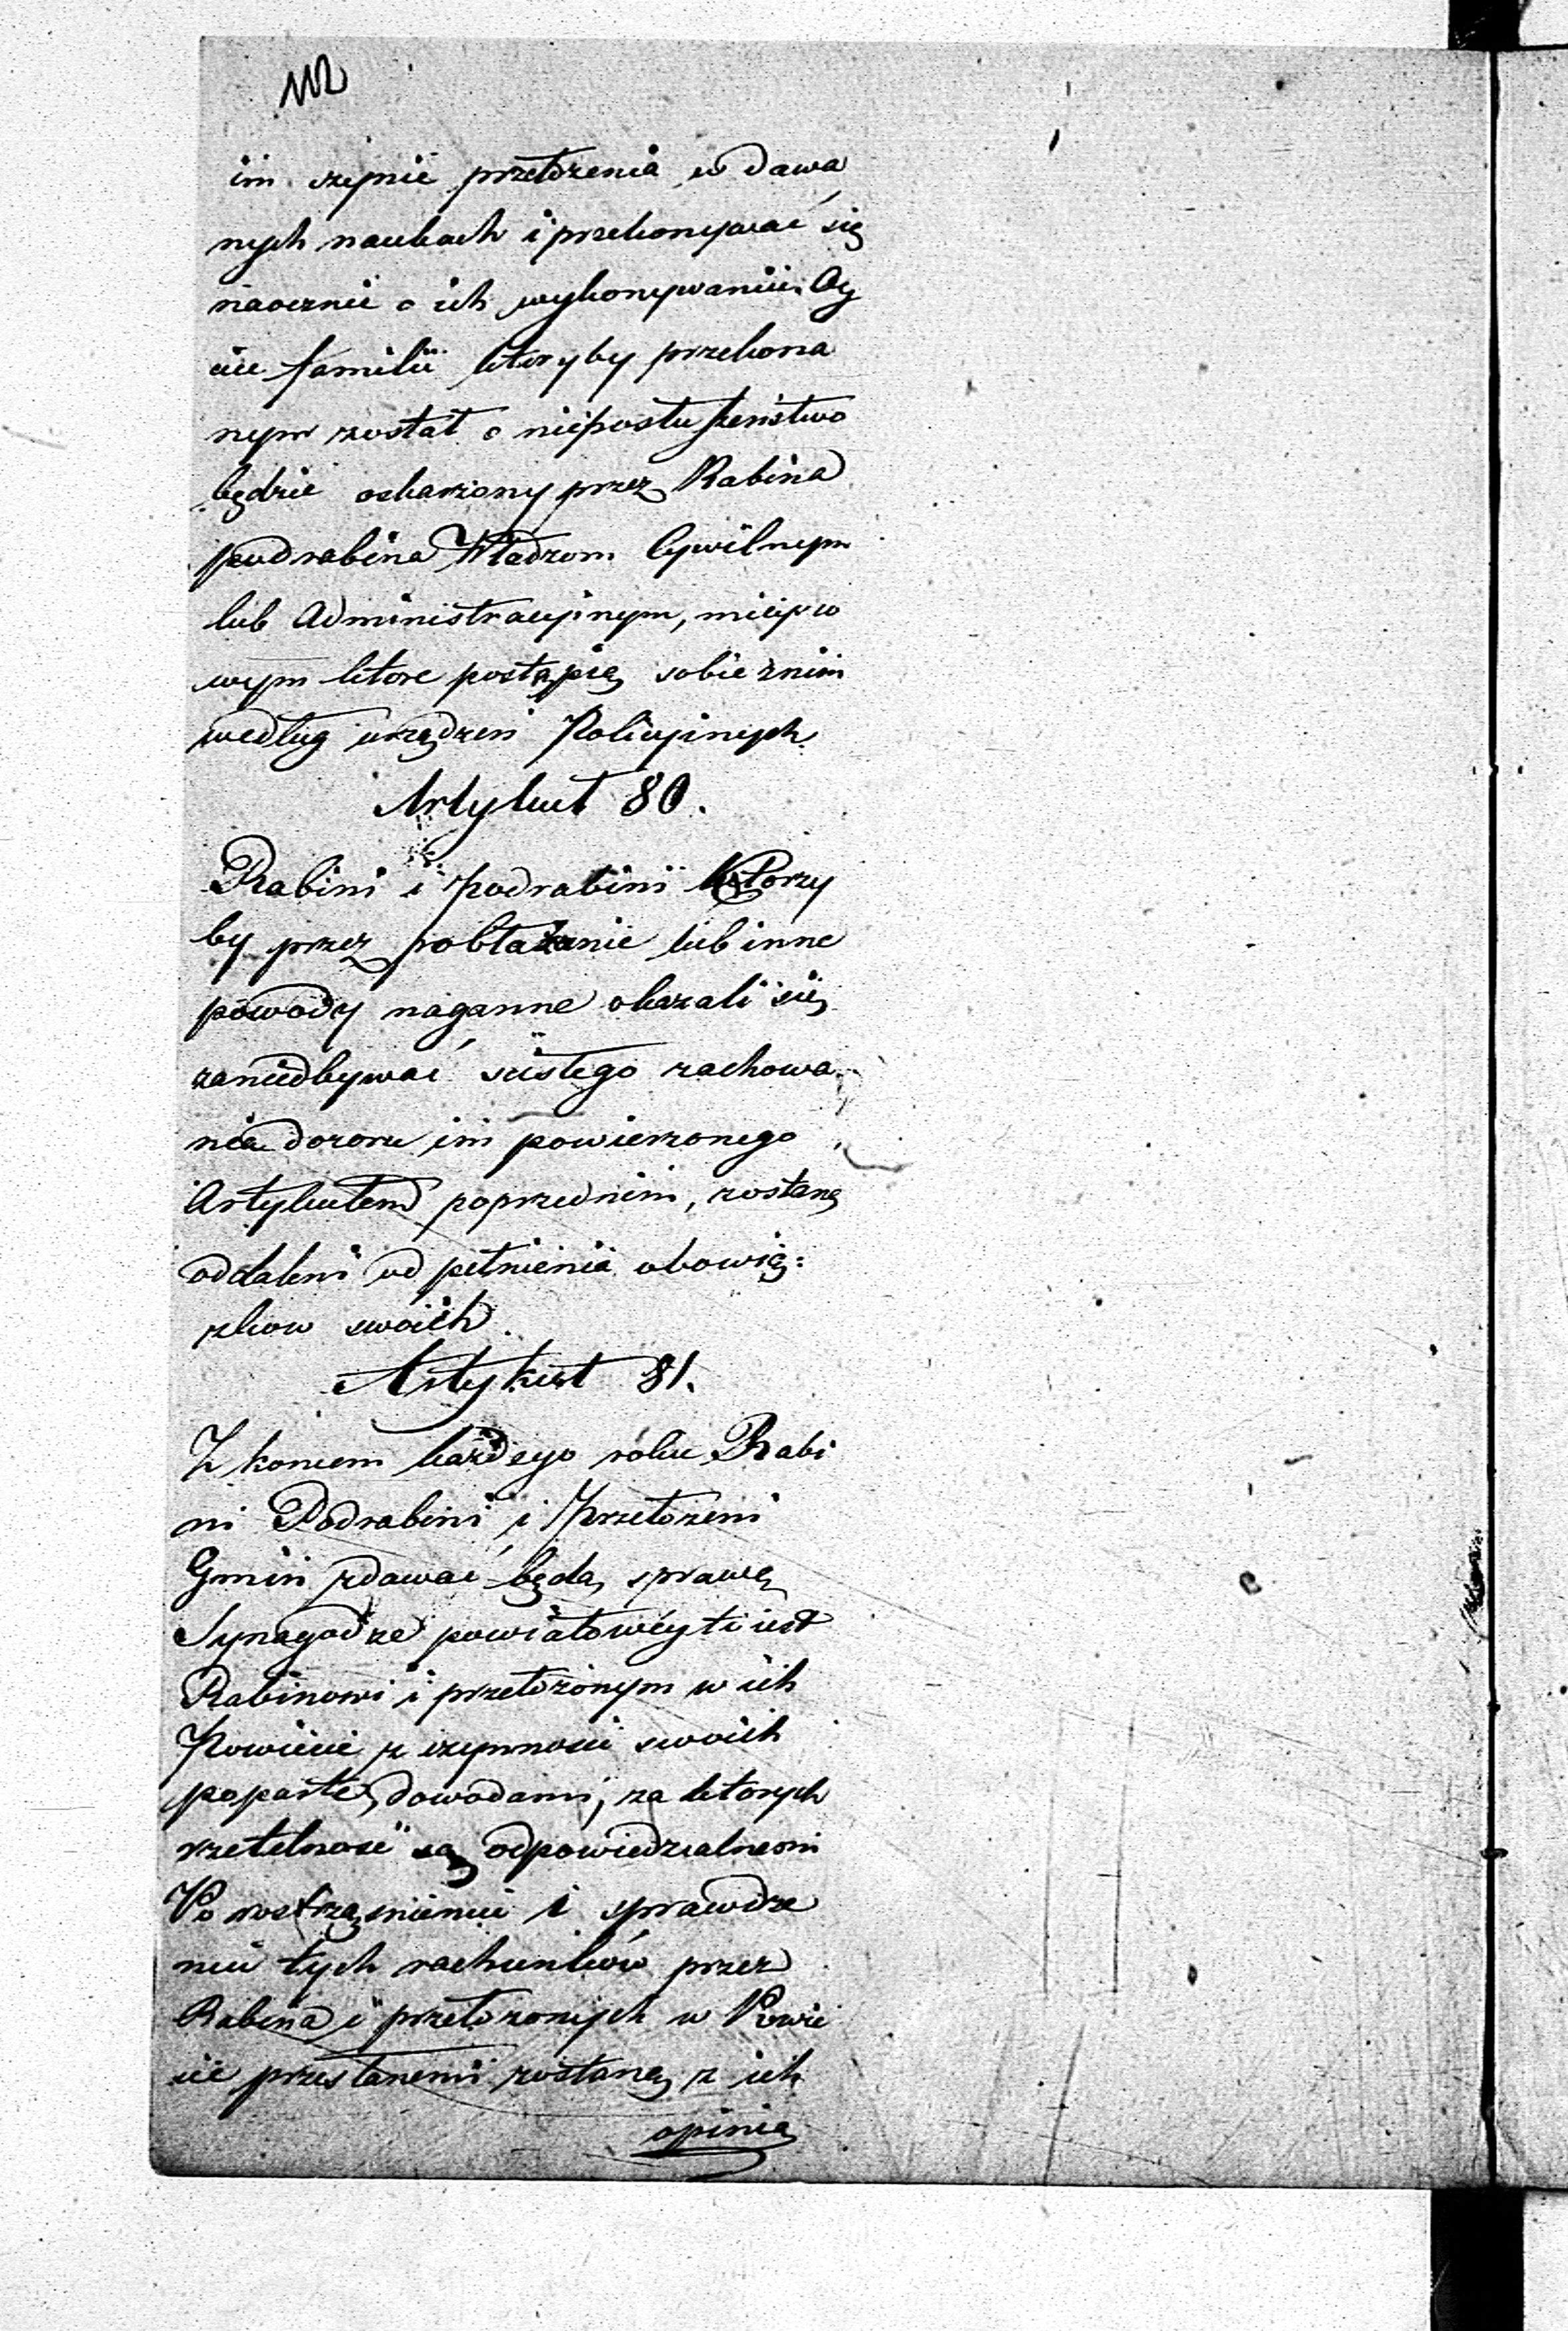 112
im czynić przełożenia w dawa
nych naukach i przekonywać się
naocznie o ich wykonywaniu. Oy
ciec familii ktoryby przekona
nym został o nieposłuszeństwo
będzie oskarżony przez Rabina
podrabina Władzom Cywilnym
lub Administracyinym, mieysco
wym ktore postąpią sobie z nim
według urządzeń Policyinych.
Artykuł 80.
Rabini i podrabini ktorzy
by przez pobłażanie lub inne
powody naganne okazali się
zaniedbywać scisłego zachowa
nia dozoru im powierzonego
Artykułem poprzednim, zostaną
oddaleni od pełnienia obowią:
zkow swoich.
Artykuł 81.
Z koncem każdego roku Rabi
ni Podrabini i Przełożeni
Gmin zdawać będą sprawę
Synagodze powiatowéy to iest
Rabinowi i przełożonym w ich
Powiecie z czynnosci swoich
poparte dowodami, za ktorych
rzetelnosć są odpowiedzialnemi
Po rostrząśnieniu i sprawdze
niu tych rachunków przez
Rabina i przełożonych w Powie
cie przesłanemi zostaną z ich
opinią